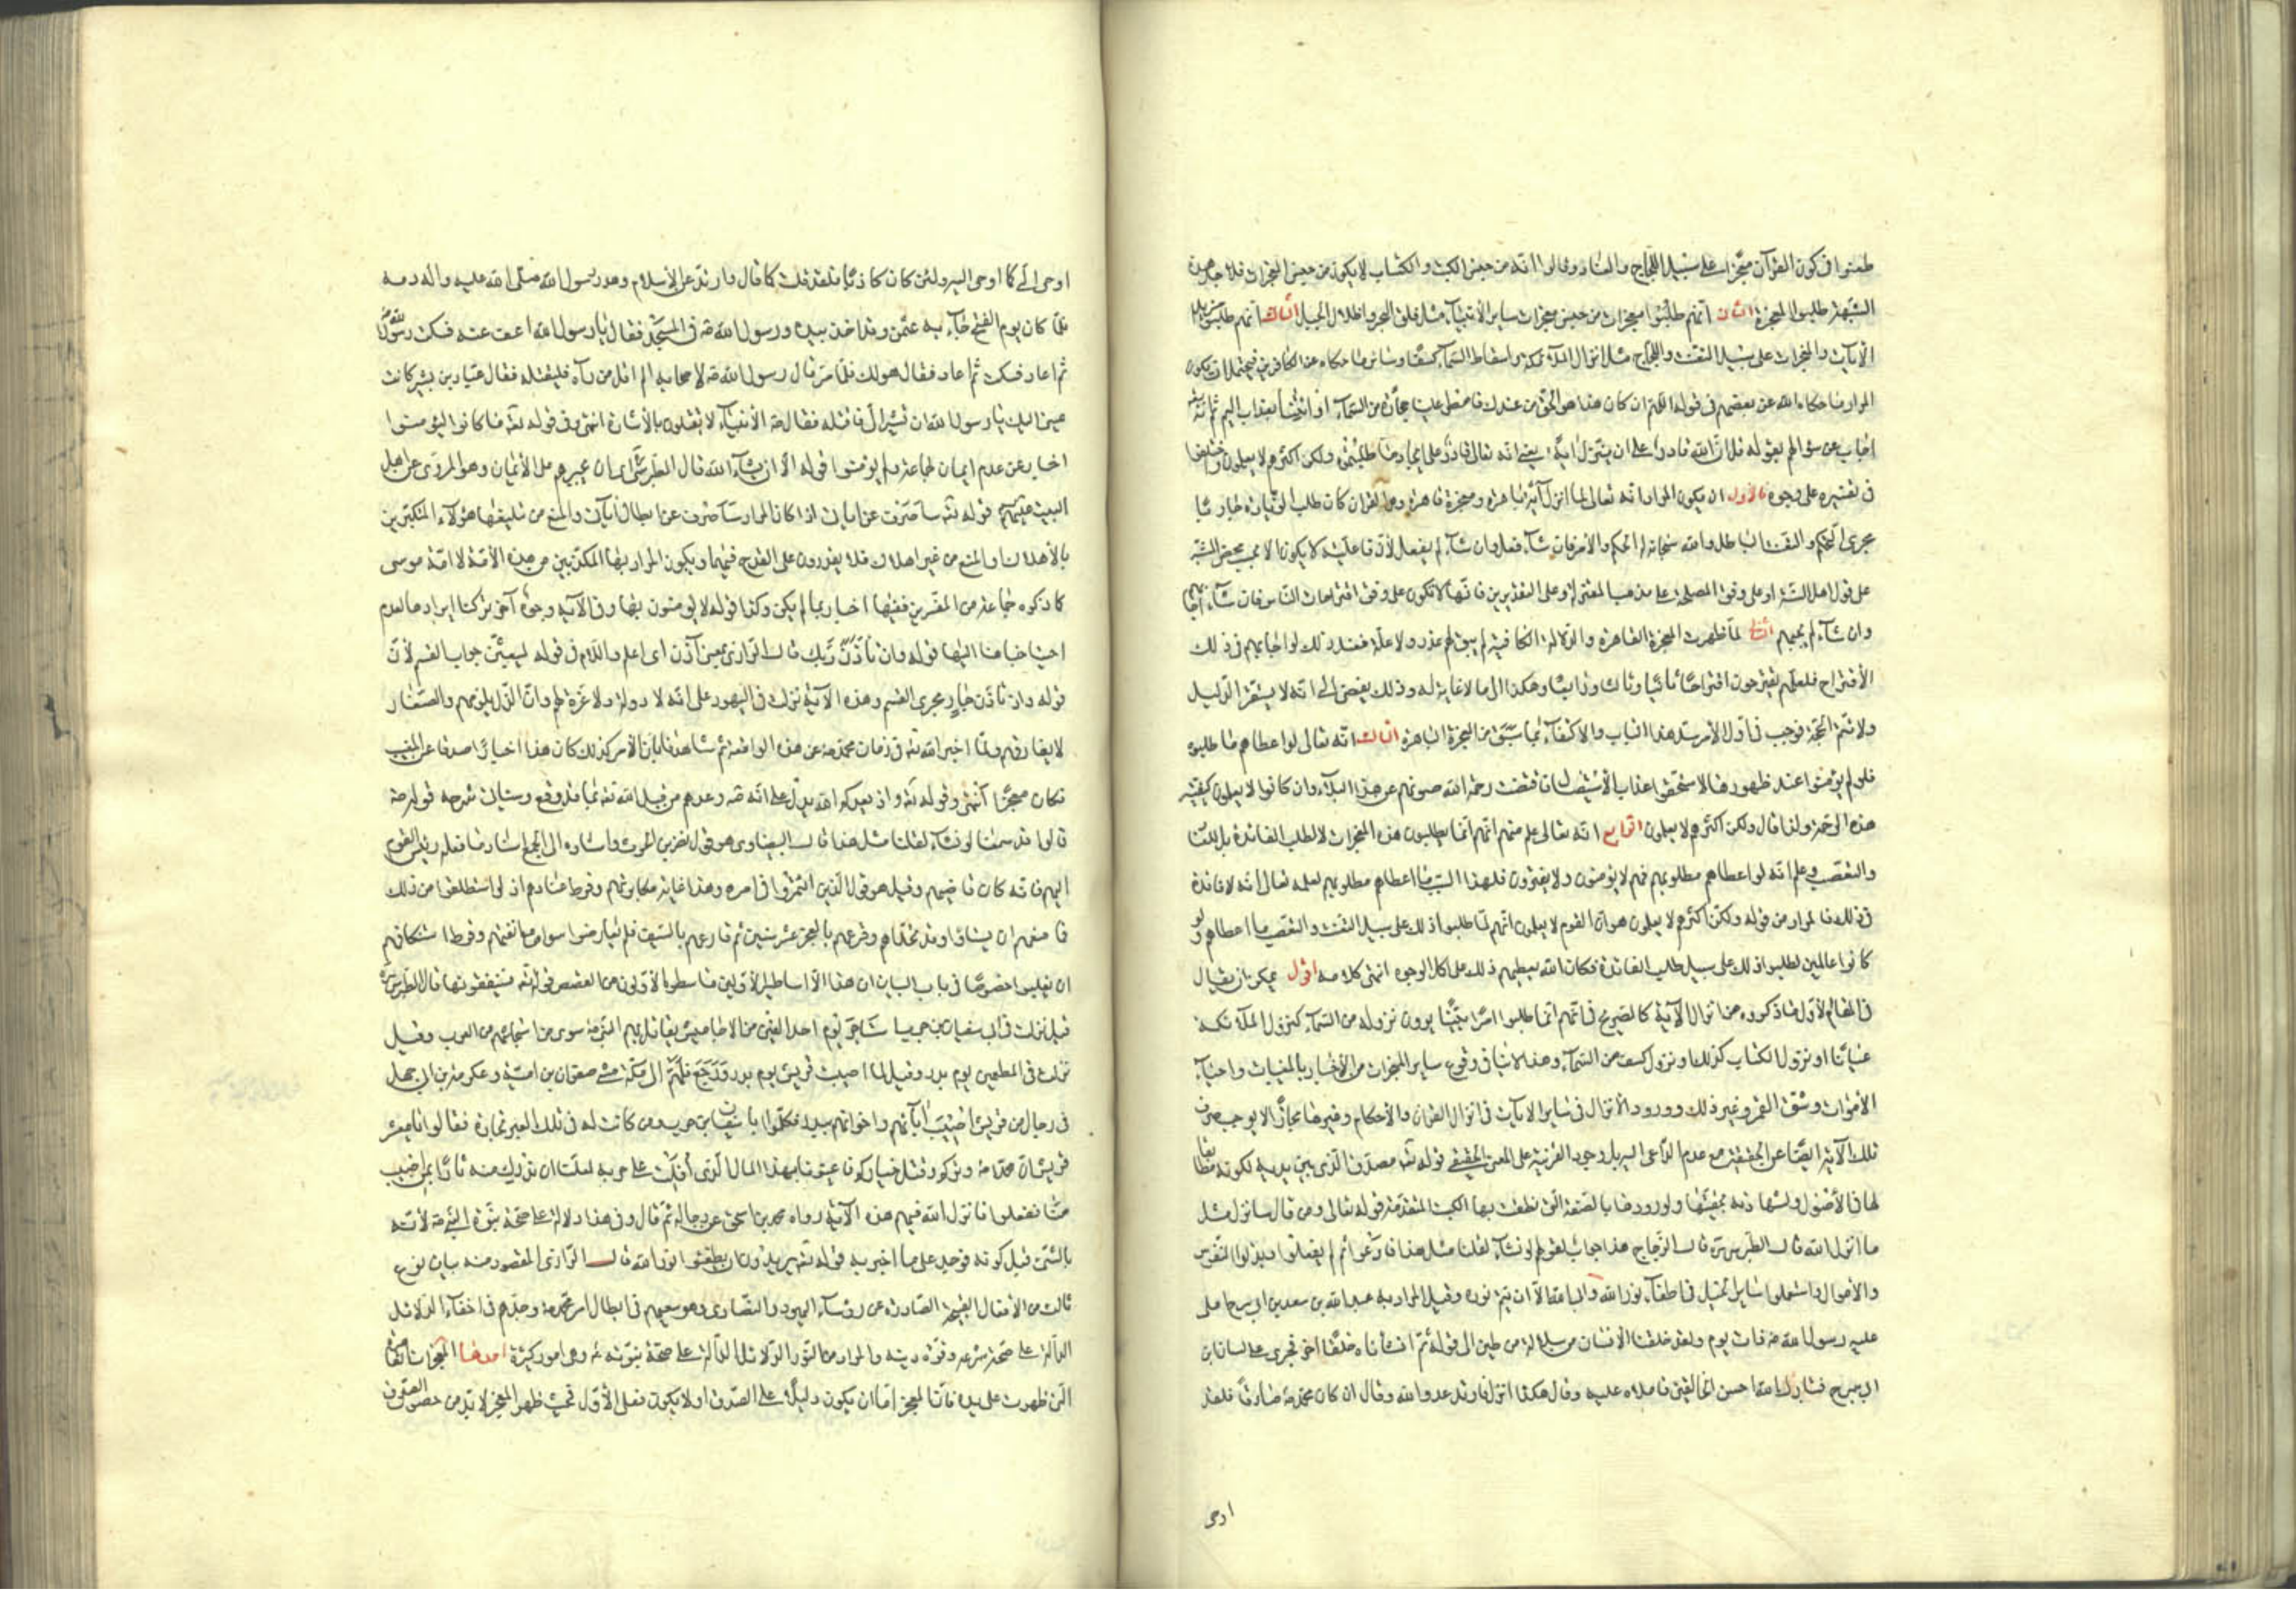 طعنوا في كون القرآن معجزا على سبيل اللجاج والعناد وقالوا انه من جنس الكتب والكتاب لا يكون من جنس المعجزات فلاجل هذه
الشبهة طلبوا المعجزة الثاني انهم طلبوا معجزات من جنس معجزات ساير الأنبياء مثل فلق البحر واظلال الجبل الثالث انهم طلبوا مزيد
الآيات والمعجزات على سبيل التعنت واللجاج مثل انزال الملائكة واسقاط السماء كسفا وساير ما حكاه عن الكافرين فيحتمل ان يكون
المراد ما حكاه الله عن بعضهم في قوله اللهم ان كان هذا هو الحق من عندك فامطر علينا حجارة من السماء او ائتنا بعذاب اليم ثم انه تعالى
اجاب عن سؤالهم بقوله قل ان الله قادر على ان ينزل اية يعني انه تعالى قادر على ايجاد ما طلبتموه ولكن اكثرهم لا يعلمون واختلفوا
في تفسيره على وجوه فالأول ان يكون المراد انه تعالى لما انزل آية باهرة ومعجزة قاهرة وهي القرآن كان طلب الزيادة جاريا
مجرى التحكم والتعنت الباطل والله سبحانه له الحكم والأمر فان شاء فعل وان شاء لم يفعل لأن فاعليته لا يكون الا بحسب محض المشية
على قول اهل السنة او على وفق المصلحة على مذهب المعتزلة وعلى التقديرين فانها لا تكون على وفق اقتراحات الناس فان شاء اجابهم
وان شاء لم يجبهم الثاني لما ظهرت المعجزة القاهرة والدلالة الكافية لم يبق لهم عذر ولا علة فبعد ذلك لو اجابهم في ذلك
الأقتراح فلعلهم يقترحون اقتراحا ثانيا وثالثا ورابعا وهكذا الى ما لا غاية له وذلك يفضي الى انه لا يستقر الدليل
ولا تتم الحجة فوجب في اول الأمر سد هذا الباب والاكتفاء بما سبق من المعجزة الباهرة الثالث انه تعالى لو اعطاهم ما طلبوه
فلو لم يؤمنوا عند ظهورها لاستحقوا عذاب الأستيصال فاقتضت رحمة الله صونهم عن هذا البلاء وان كانوا لا يعلمون كيفية
هذه الرحمة ولذا قال ولكن اكثرهم لا يعلمون الرابع انه تعالى علم منهم انهم انما يطلبون هذه المعجزات لا لطلب الفائدة بل للعناد
والتعصب وعلم انه لو اعطاهم مطلوبهم فهم لا يؤمنون ولا يقرون فلهذا السبب ما اعطاهم مطلوبهم لعلمه تعالى انه لا فائدة
في ذلك فالمراد من قوله ولكن اكثرهم لا يعلمون هو ان القوم لا يعلمون انهم لما طلبوا ذلك على سبيل التعنت والتعصب ما اعطاهم ولو
كانوا عالمين لطلبوا ذلك على سبيل طلب الفائدة فكان الله يعطيهم ذلك على اكمل الوجوه انتهى كلامه اقول يمكن ان يقال
في المقام الأول ما ذكروه من انزال الآية كالصريح في انهم انما طلبوا امرا يرون نزوله من السماء كنزول الملائكة
عيانا او نزول الكتاب كذلك او نزول كسف من السماء وهذا لا ينافي وقوع ساير المعجزات من الأخبار بالمغيبات واحياء
الأموات وشق القمر وغير ذلك وورود الأنزال في ساير الايات في انزال القرآن والأحكام وغيرها مجازا لا يوجب صرف
تلك الآية ايضا عن الحقيقة مع عدم الداعي اليه بل وجود القرينة على المعنى الحقيقي قوله تعالى مصدق الذي بين يديه لكونه مطابقا
لها في الأصول ولشهادته بحقيتها ولورودها بالصفة التي نطقت بها الكتب المتقدمة قوله تعالى ومن قال سانزل مثل
ما انزل الله قال الطبرسي قال الزجاج هذا جواب لقولهم لو نشاء لقلنا مثل هذا فادعوا ثم لم يفعلوا وبذلوا النفوس
والاموال واستعملوا ساير الحيل في اطفاء نور الله وابى الله الا ان يتم نوره وقيل المراد به عبد الله بن سعد بن ابي سرح املى
عليه رسول الله ص ذات يوم ولقد خلقنا الانسان من سلالة من طين الى قوله ثم انشأناه خلقا اخر فجرى على لسان ابن
ابي سرح فتبارك الله احسن الخالقين فاملاه عليه وقال هكذا انزل فارتد عدو الله وقال ان كان محمد ص صادقا فلقد
اوحى
اوحى الي كما اوحى اليه ولئن كان كاذبا فلقد قلت كما قال وارتد عن الأسلام وهدر رسول الله صلى الله عليه وآله دمه
فلما كان يوم الفتح جاء به عثمن وقد اخذ بيده ورسول الله ص في المسجد فقال يا رسول الله اعف عنه فسكت رسول الله ص
ثم اعاد فسكت ثم اعاد فقال هو لك فلما مر قال رسول الله ص لاصحابه الم اقل من رآه فليقتله فقال عباد بن بشر كانت
عيني اليك يا رسول الله ان تشير الي فاقتله فقال ص الأنبياء لا يقتلون بالأشارة انتهى وفي قوله تعالى ما كانوا ليؤمنوا
اخبار عن عدم ايمان جماعة فلم يؤمنوا قوله الا ان يشاء الله قال الطبرسي اى ان يجبرهم على الأيمان وهو المروى عن اهل
البيت عليهم السلام قوله تعالى ساصرف عن اياتي اذا كان المراد ساصرف عن ابطال آياتي والمنع من تبليغها هؤلاء المتكبرين
بالأهلاك او المنع من غير اهلاك فلا يقدرون على القدح فيها ويكون المراد بها المكذبين من هذه الأمة لا امة موسى
كما ذكره جماعة من المفسرين ففيها اخبار بما لم يكن وكذا قوله لا يؤمنون بها وفي الآية وجوه آخر تركنا ايرادها لعدم
احتياجنا اليها قوله واذ تأذن ربك قال الرازي بمعنى آذن اى اعلم واللام في قوله ليبعثن جواب القسم لأن
قوله واذ تأذن جار مجرى القسم وهذه الآية نزلت في اليهود على انه لا دولة ولا عزة لهم وان الذل يلزمهم والصغار
لا يفارقهم ولما اخبر الله تعالى في زمان محمد ص عن هذه الواقعة ثم شاهدنا بان الأمر كذلك كان هذا اخبارا صدقا عن الغيب
فكان معجزا انتهى وقوله تعالى واذ يعدكم الله يدل على انه ص وعدهم من قبل الله تعالى بما قد وقع وسياتي شرحه قوله تعالى
قالوا قد سمعنا لو نشاء لقلنا مثل هذا قال البيضاوي هو قول نضر بن الحرث واسناده الى الجمع اسناد ما فعله رئيس القوم
اليهم فانه كان قاضيهم وقيل هو قول الذين ائتمروا في امره وهذا غاية مكابرتهم وفرط عنادهم اذ لو استطاعوا من ذلك
فما منعهم ان يشاؤا وقد تحداهم وقرعهم بالعجز عشر سنين ثم قارعهم بالسيف فلم يعارضوا سواه مع انفتهم وفرط استنكافهم
ان يغلبوا خصوصا في باب البيان ان هذا الا اساطير الأولين ما سطره الأولون من القصص قوله تعالى فسينفقونها قال الطبرسي ره
قيل نزلت في ابي سفيان بن حرب استاجر يوم احد الفين من الاحابيش يقاتل بهم النبي ص سوى من استجاشهم من العرب وقيل
نزلت في المطعمين يوم بدر وقيل لما اصيبت قريش يوم بدر ورجع فلهم الى مكة مشى صفوان بن امية وعكرمة بن ابي جهل
في رجال من قريش اصيب آباؤهم واخوانهم ببدر فكلموا ابا سفيان بن حرب ومن كانت له في تلك العير تجارة فقالوا يا معشر
قريش ان محمدا ص وتركم وقتل خياركم فاعينونا بهذا المال الذي افلت على حربه لعلنا ان ندرك منه ثارا بمن اصيب
منا ففعلوا فانزل الله فيهم هذه الآية رواه محمد بن اسحق عن رجاله ثم قال وفي هذا دلالة على صحة نبوة النبي ص لأنه اخبر
بالشئ قبل كونه فوجد على ما اخبر به قوله تعالى يريدون ان يطفئوا نور الله قال الرازي المقصود منه بيان نوع
ثالث من الأفعال القبيحة الصادرة عن رؤساء اليهود والنصارى وهو سعيهم في ابطال امر محمد ص وجدهم في اخفاء الدلائل
الدالة على صحة شرعه وقوة دينه والمراد من النور الدلائل الدالة على صحة نبوته ص وهي امور كثيرة احدها المعجزات القاهرة
التي ظهرت على يده فان المعجز اما ان يكون دليلا على الصدق او لا يكون فعلى الأول فحيث ظهر المعجز لا بد من حصول الصدق